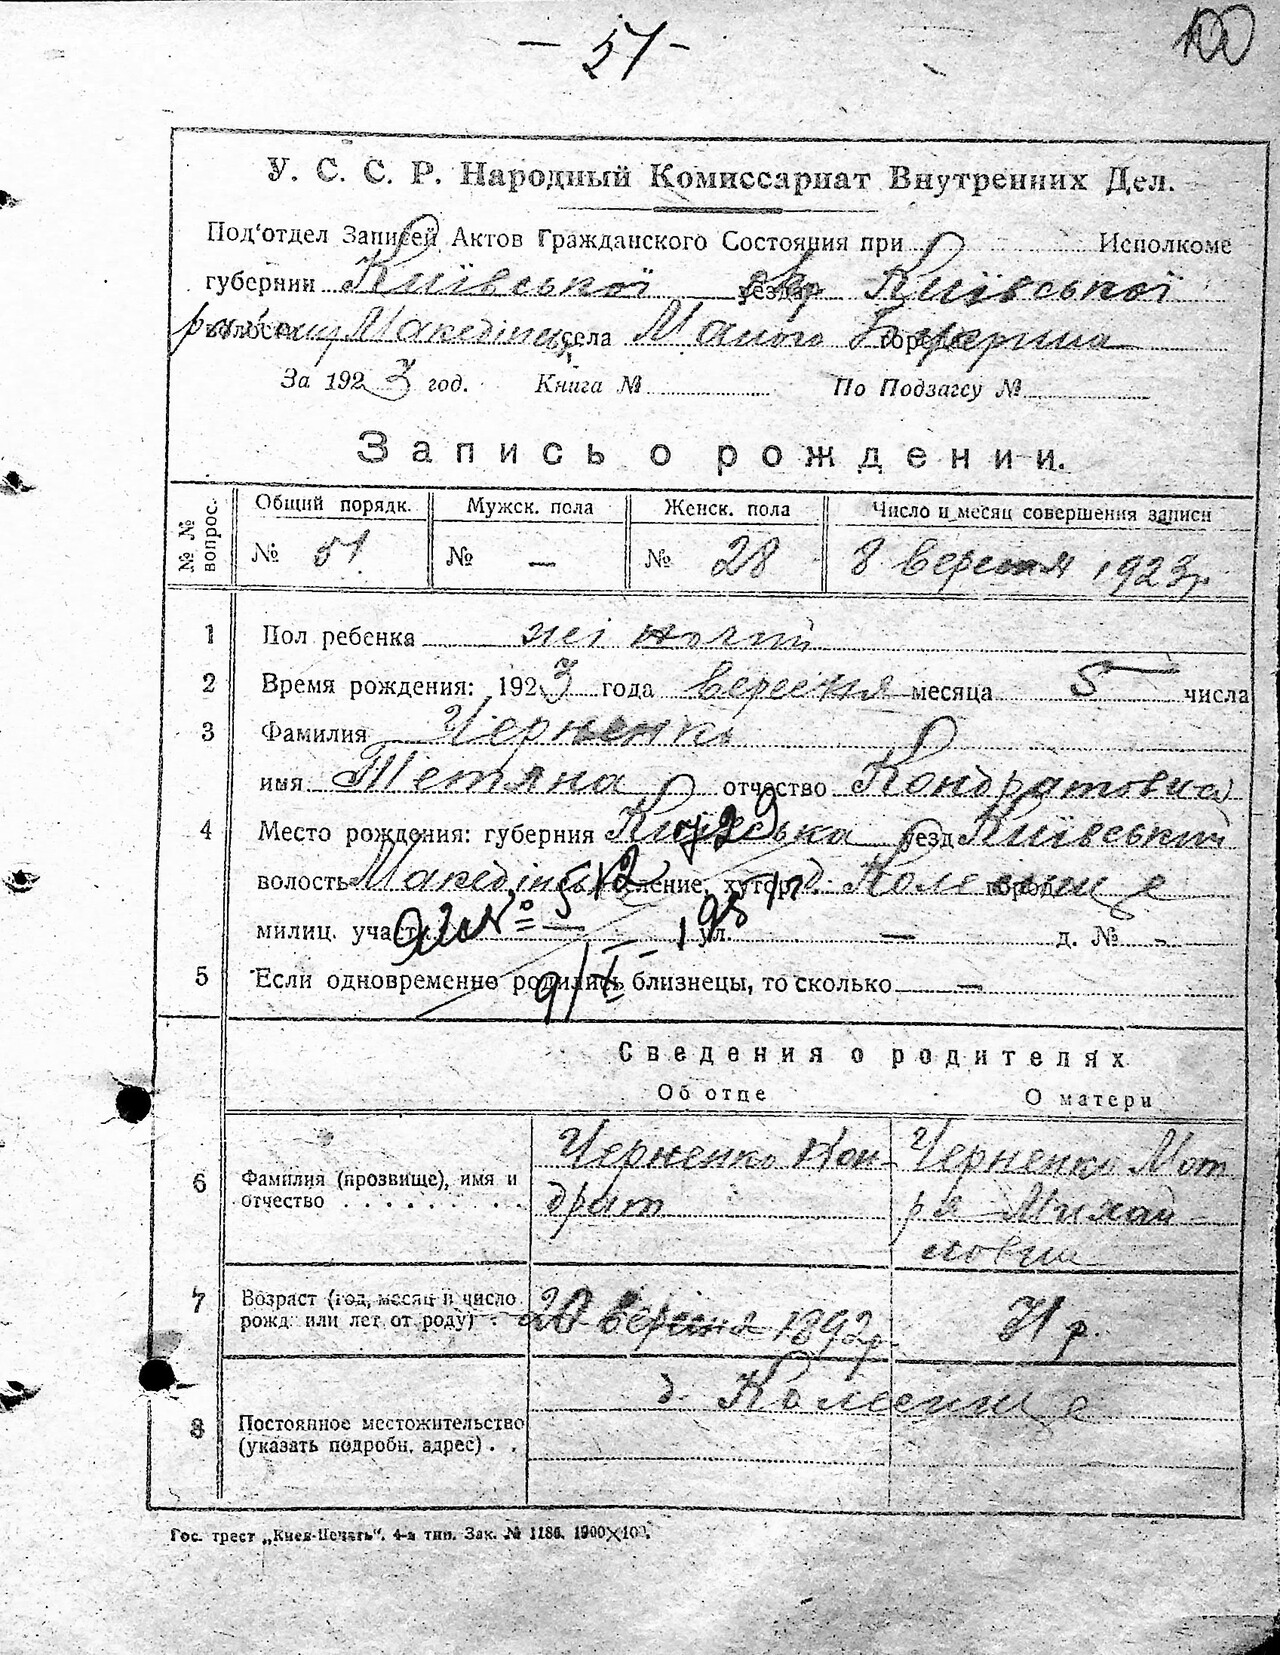 — 51 —
100
У. С. С. Р. Народный Комиссариат Внутренних Дел.
Под'отдел Записей Актов Гражданского Состояния при Исполкоме
губернии Київської уезда окр Київської
волости району Македінськ села Малого Букрина города
За 1923 год. Книга № По Подзагсу №
Запись о рождении.
№ № вопрос. Общий порядк. Мужск. пола Женск. пола Число и месяц совершения записи
№ 51. № — № 28 8 вересня 1923 р
1 Пол ребенка жіночий
2 Время рождения: 1923 года вересня месяца 5 числа
3 Фамилия Черненко
имя Тетяна отчество Кондратовна
4 Место рождения: губерния Київська уезд Київський
волость Македінськ селение, хутор д. Колесище город
милиц. участ. — ул. — д. № -
5 Если одновременно родились близнецы, то сколько —
Сведения о родителях
Об отце О матери
6 Фамилия (прозвище), имя и отчество
Черненко Кон-
драт
Черненко Мот
ря Михай-
ловна
7 Возраст (год, месяц и число рожд. или лет от роду)
20 вересня 1892 р.
31 р.
8 Постоянное местожительство (указать подробн. адрес)
д. Колесище
Гос. трест „Киев-Печать". 4-я тип. Зак. № 1186. 1900×100.